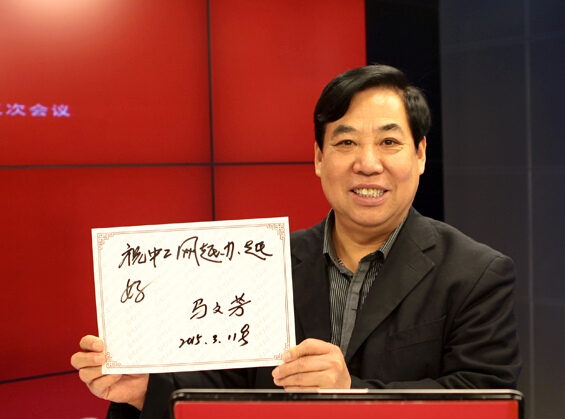 次会议
祝中工网越办、越
好
马文芳
2015.3.11号